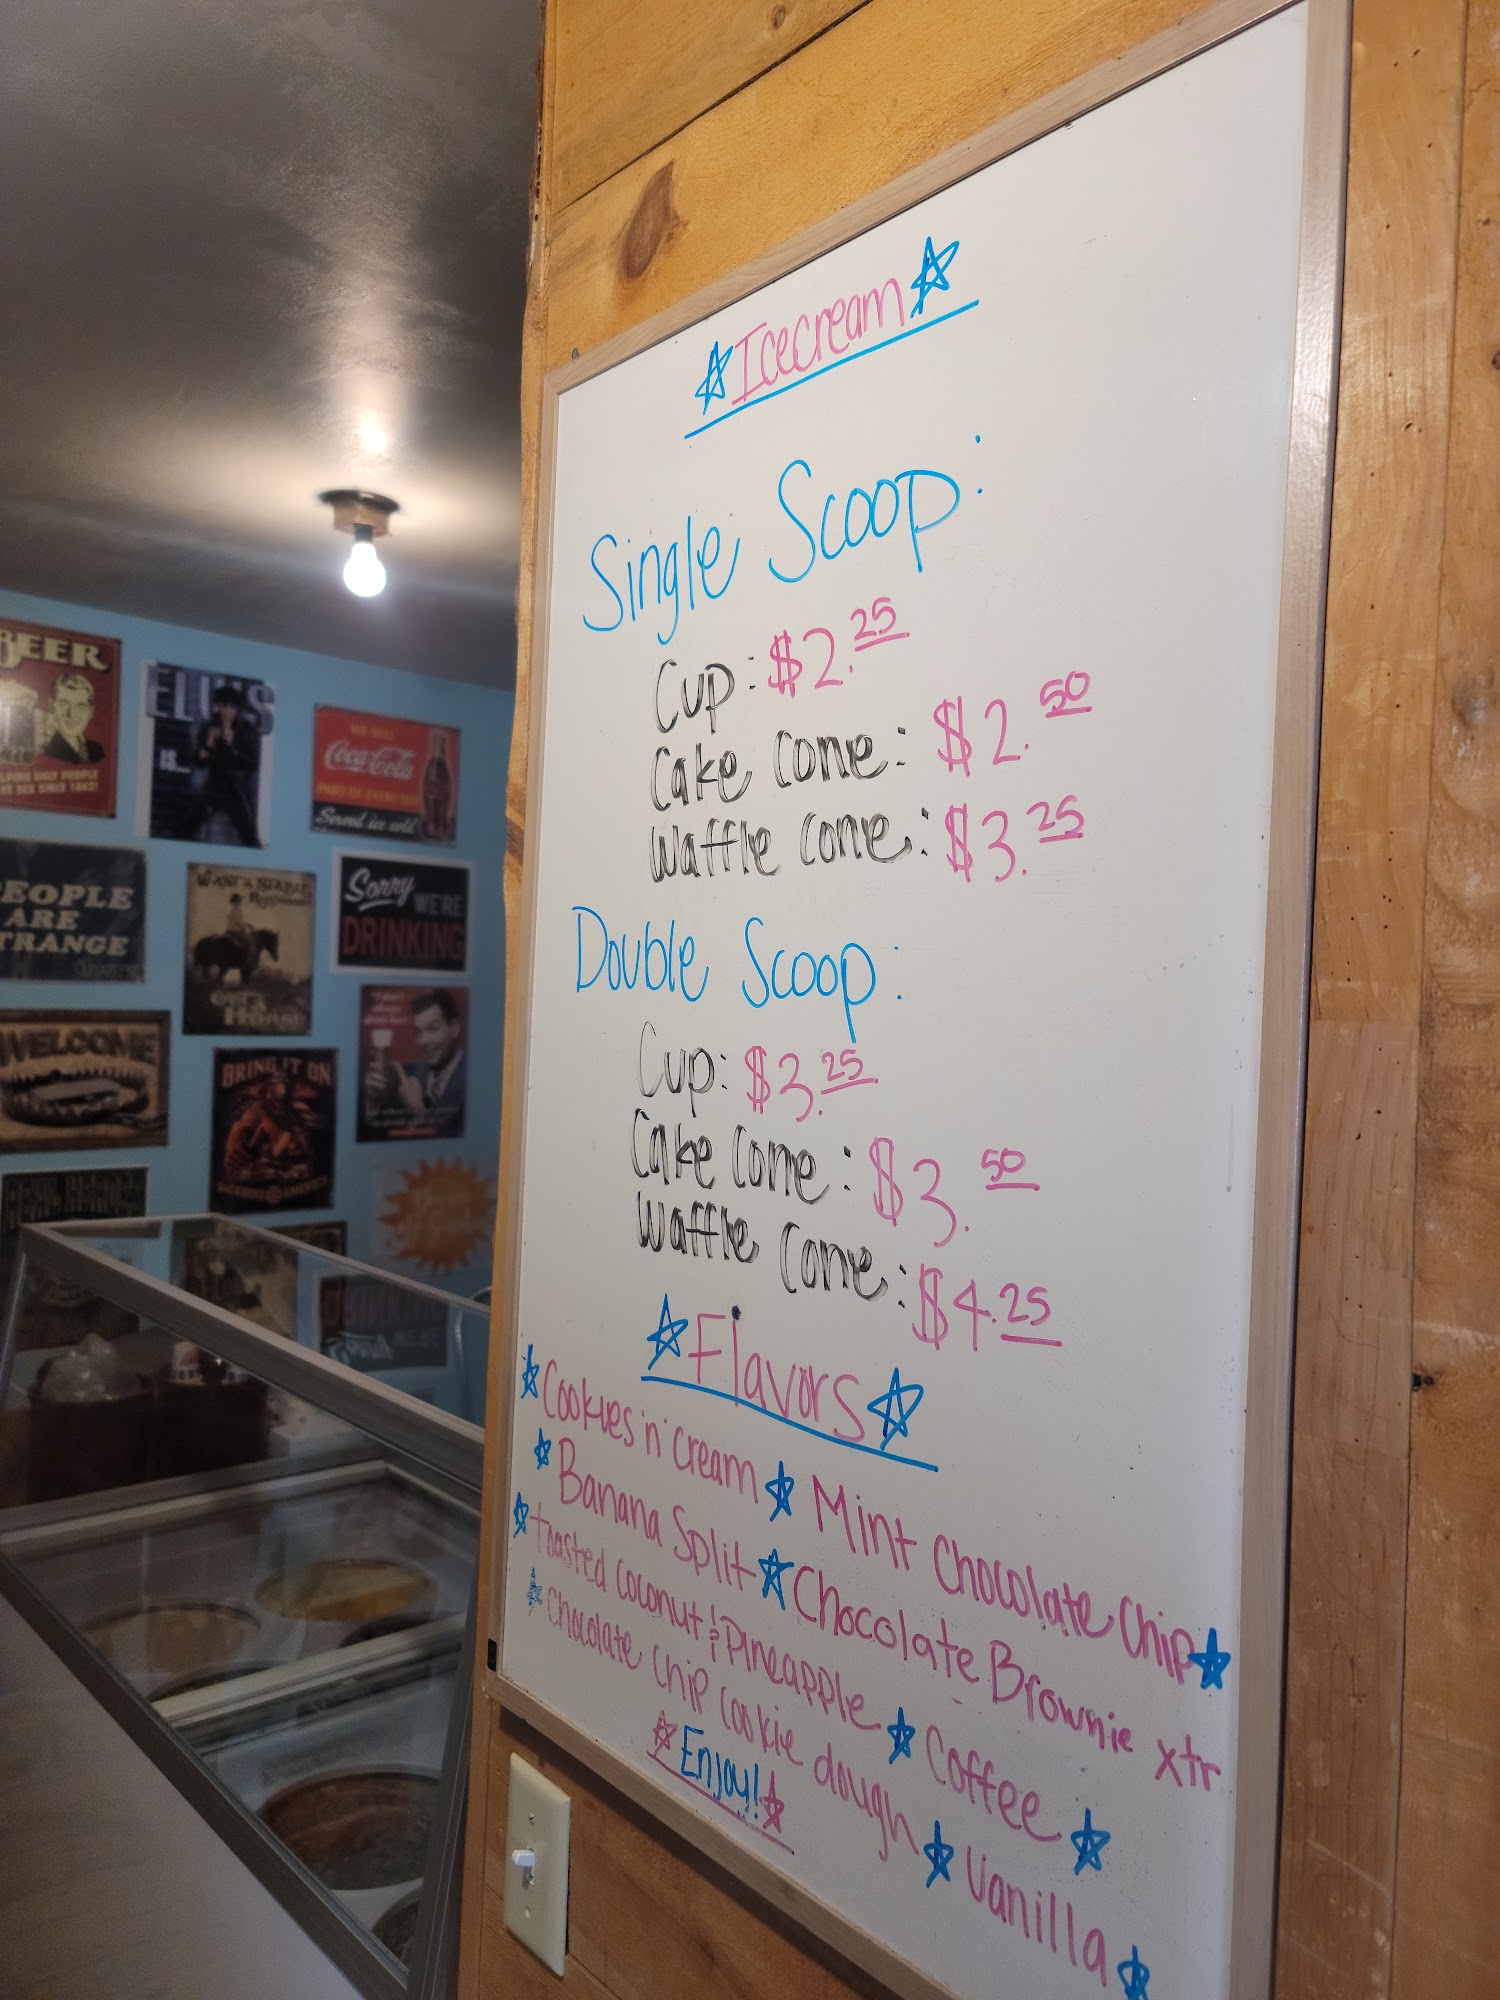 Icecream
Single Scoop:
Cup: $2.25
Cake Cone: $2.50
Waffle Cone: $3.25
Double Scoop:
Cup: $3.25
Cake Cone: $3.50
Waffle Cone: $4.25
Flavors
Cookies 'n' Cream Mint Chocolate Chip
Banana Split Chocolate Brownie xtr
toasted coconut & Pineapple Coffee
Chocolate Chip Cookie dough Vanilla
Enjoy!
BEER
SINCE 1862!
ELVIS
IS...
WE SELL
Coca-Cola
PART OF EVERY DAY
Served ice cold
PEOPLE
ARE
STRANGE
WANT A STABLE
GET A
Horse
Sorry
WE'RE
DRINKING
WELCOME
BRING IT ON